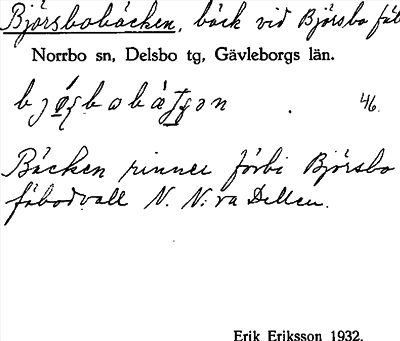 Björsbobäcken, bäck vid Björsbo fäb
Norrbo sn, Delsbo tg, Gävleborgs län.
46.
Bäcken rinner förbi Björsbo
fäbodvall N. N:ra Dellen.
Erik Eriksson 1932.